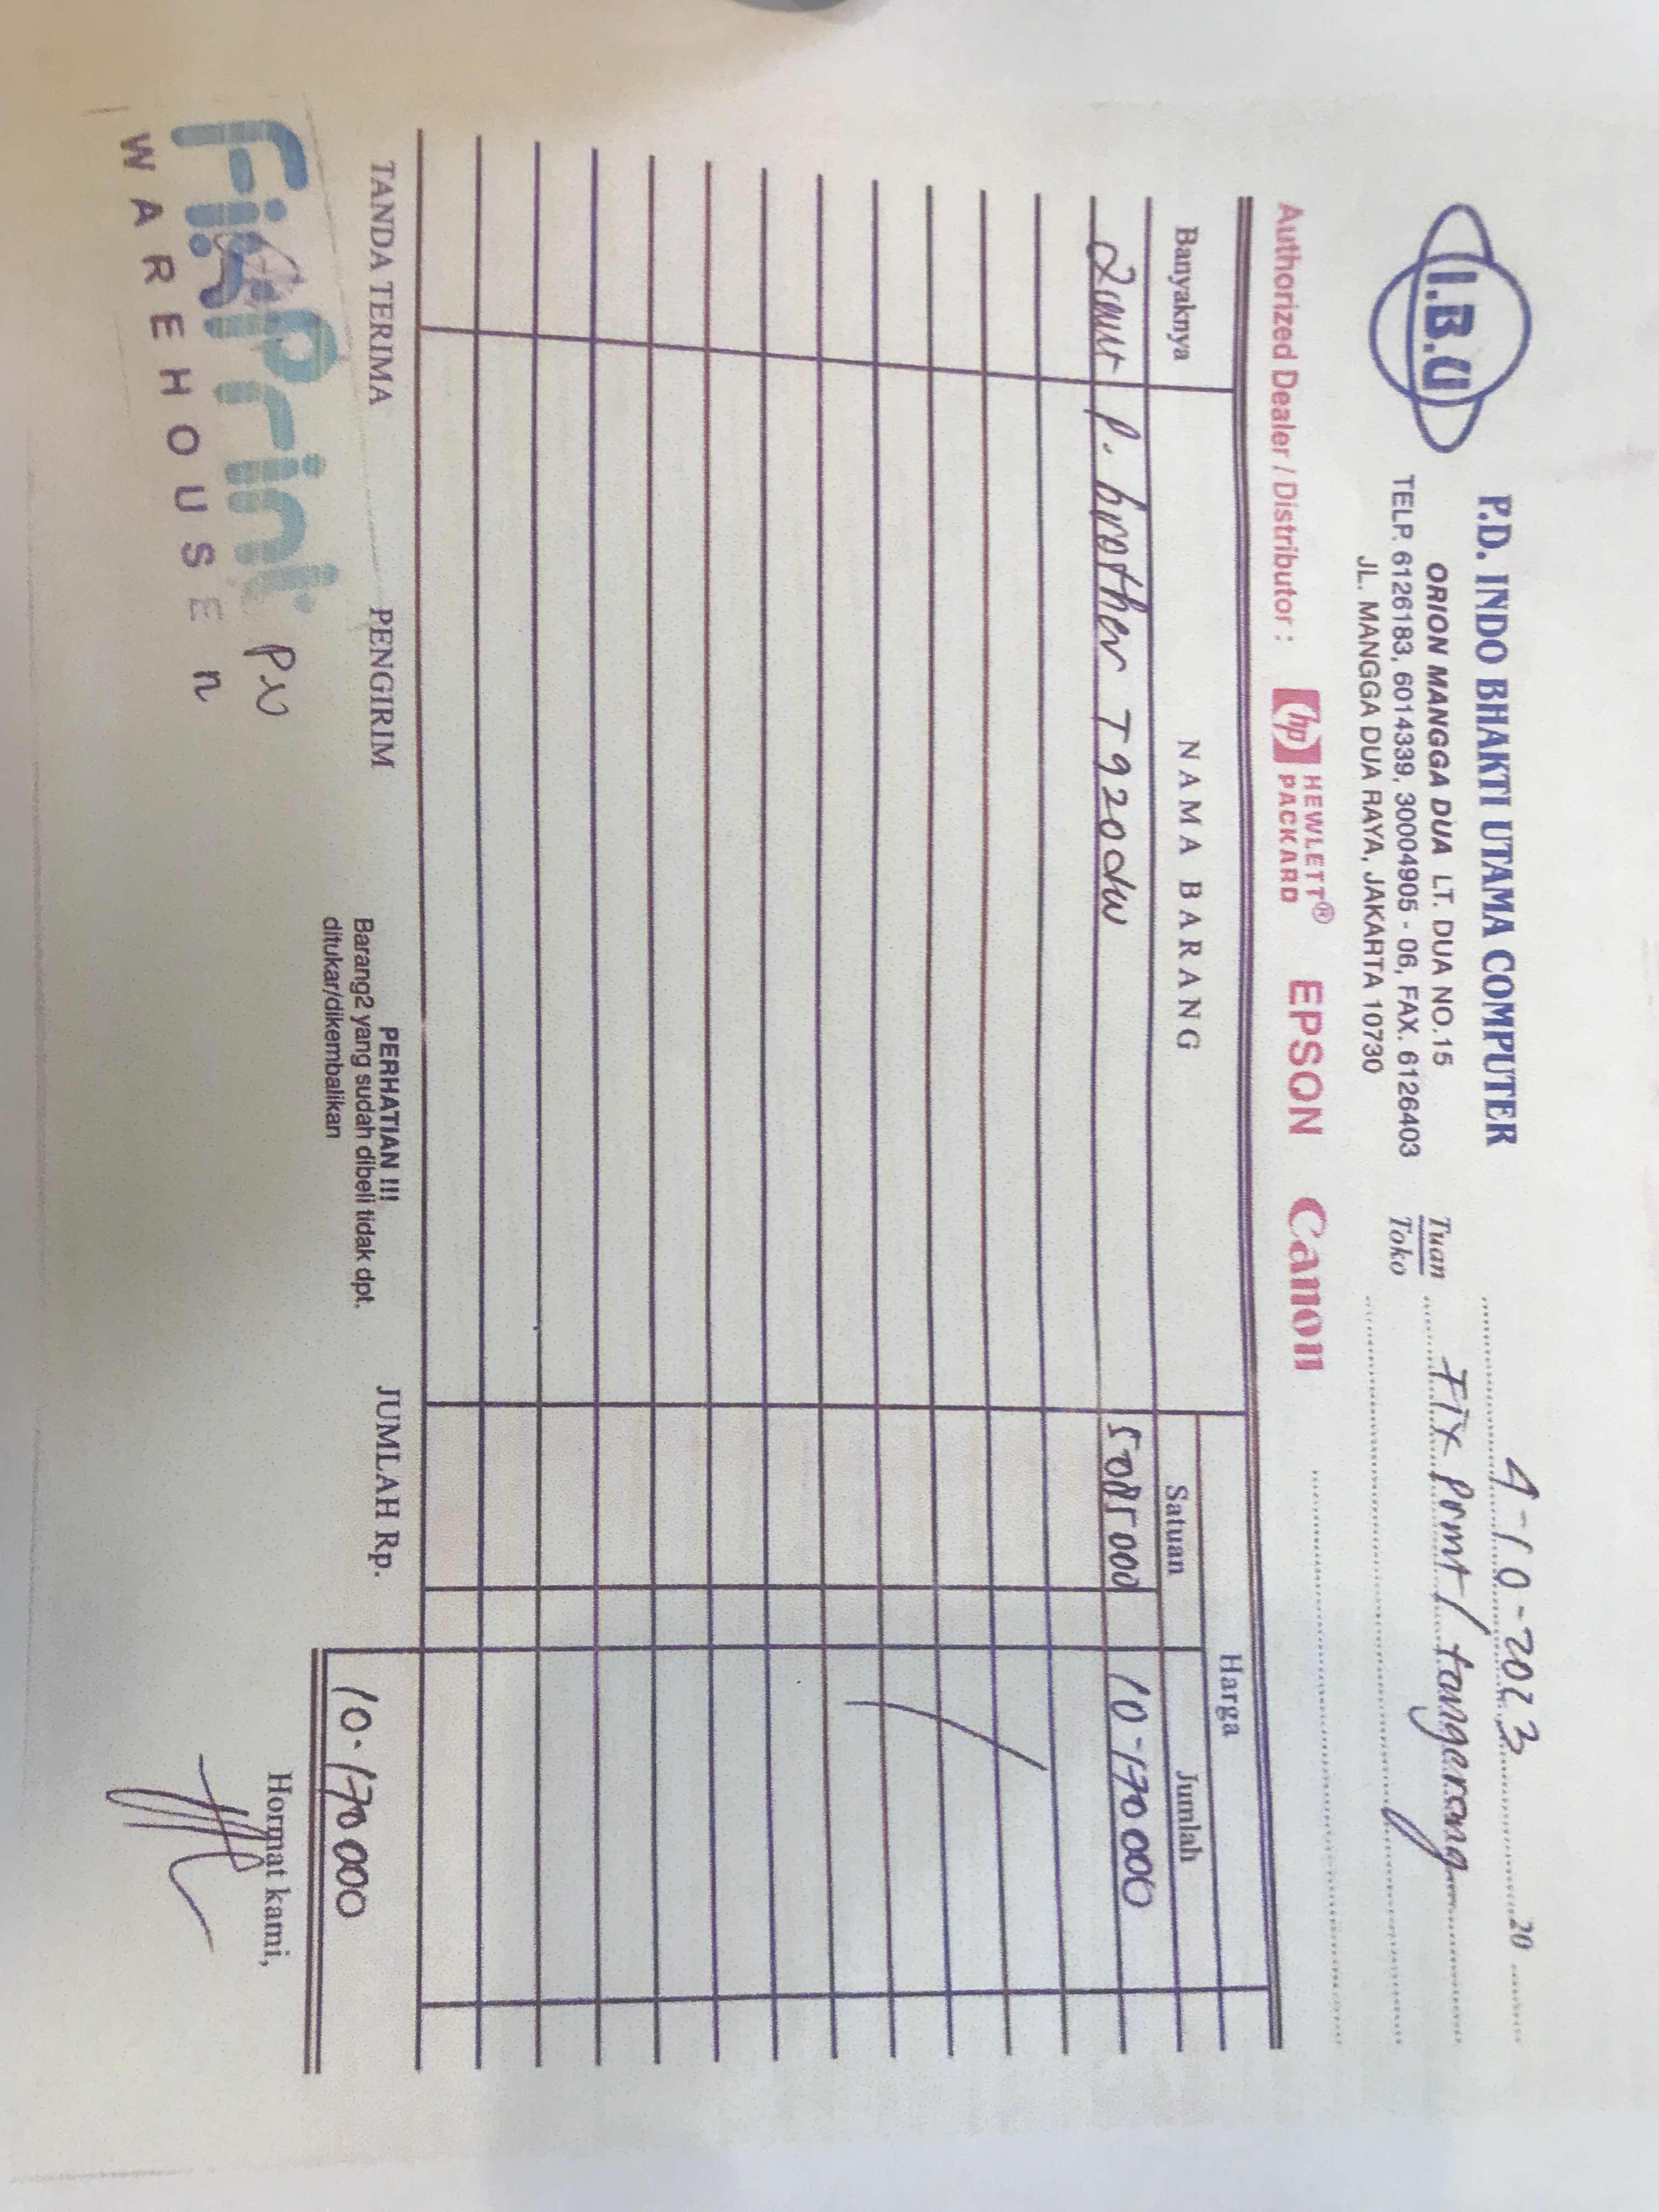 I.B.U
P.D. INDO BHAKTI UTAMA COMPUTER
ORION MANGGA DUA LT. DUA NO.15
TELP. 6126183, 6014339, 3004905 - 06, FAX. 6126403
JL. MANGGA DUA RAYA, JAKARTA 10730
4-10-2023 20
Tuan
Toko
Fix Print / tangerang
Authorized Dealer / Distributor : hp HEWLETT® PACKARD EPSON Canon
Banyaknya NAMA BARANG Harga
Satuan Jumlah
2 unit P. brother T920dw 5085000 10-170000
TANDA TERIMA PENGIRIM JUMLAH Rp. 10.170000
PERHATIAN !!!
Barang2 yang sudah dibeli tidak dpt.
ditukar/dikembalikan
Hormat kami,
FixPrint
WAREHOUSE